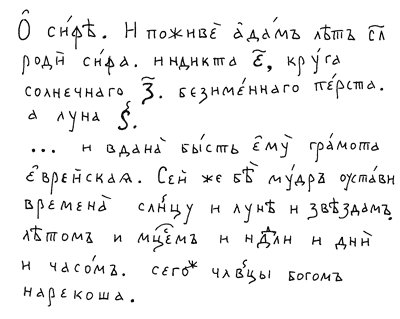 О҆ си́ѳѣ. И поживѐ а҆да́мъ лѣ́тъ с҃л
родѝ си́ѳа. индикта є҃, кру́га
солнечнаго з҃. безиме́ннаго пе́рста.
а луна ѕ҃.
... и вдана̀ бы́сть є҆мꙋ̀ гра́мота
є҆врейская. Сей же бѣ̀ мꙋ́дръ оустави
времена̀ слн҃цу и лунѣ и звѣздамъ
лѣ́томъ и мцⷭ҇емъ и нⷣлѧ и дни̑
и часо́мъ. сегоⷤ члвⷪ҇цы богомъ
нарекоша.